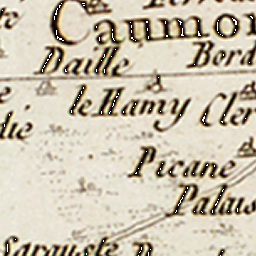 Caumon
Daille
Bord
le Hamy
Cler
dié
Picane
Palais
Sarguste